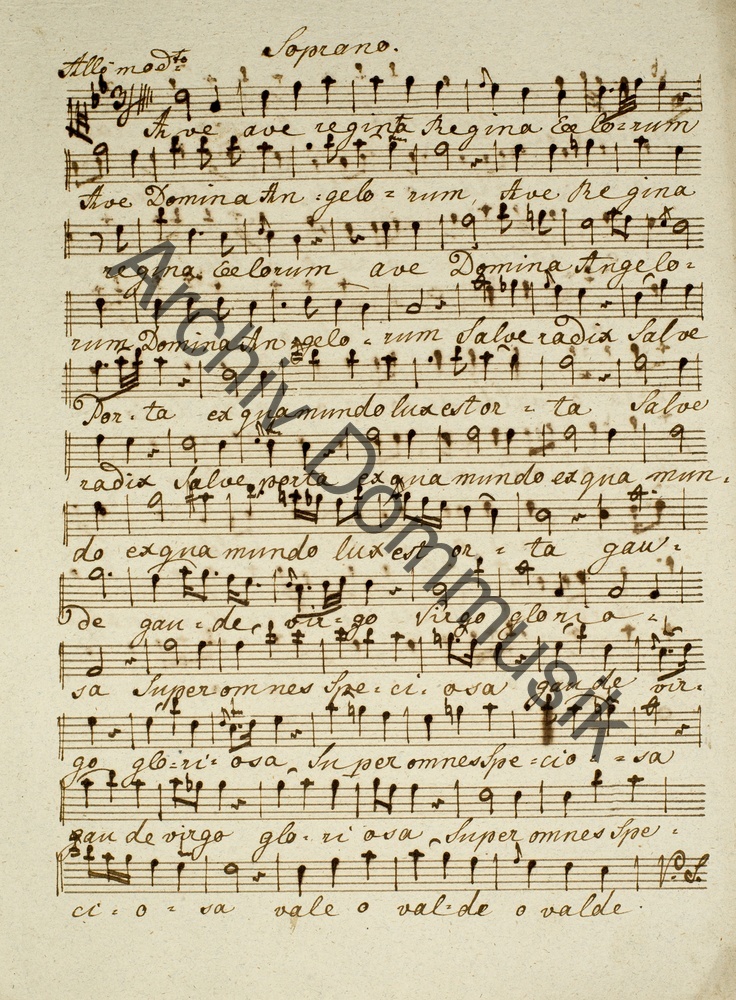 Soprano.
Allo modto
Ave ave regina Regina Coelorum
Ave Domina An-gelo-rum, Ave Regina
regina Coelorum ave Domina Angelo-
rum Domina An-gelo-rum Salve radix Salve
Por-ta ex qua mundo lux est or-ta Salve
radix Salve porta ex qua mundo ex qua mun-
do ex qua mundo lux est or-ta gau-
de gau-de vir-go Virgo glorio-
sa Super omnes Spe-ci-osa gaude vir-
go glo-ri-osa Super omnes Spe-cio-sa
gaude virgo glo-ri osa Super omnes Spe-
ci-o-sa vale o val-de o valde.
V. S.
Archiv Dommusik